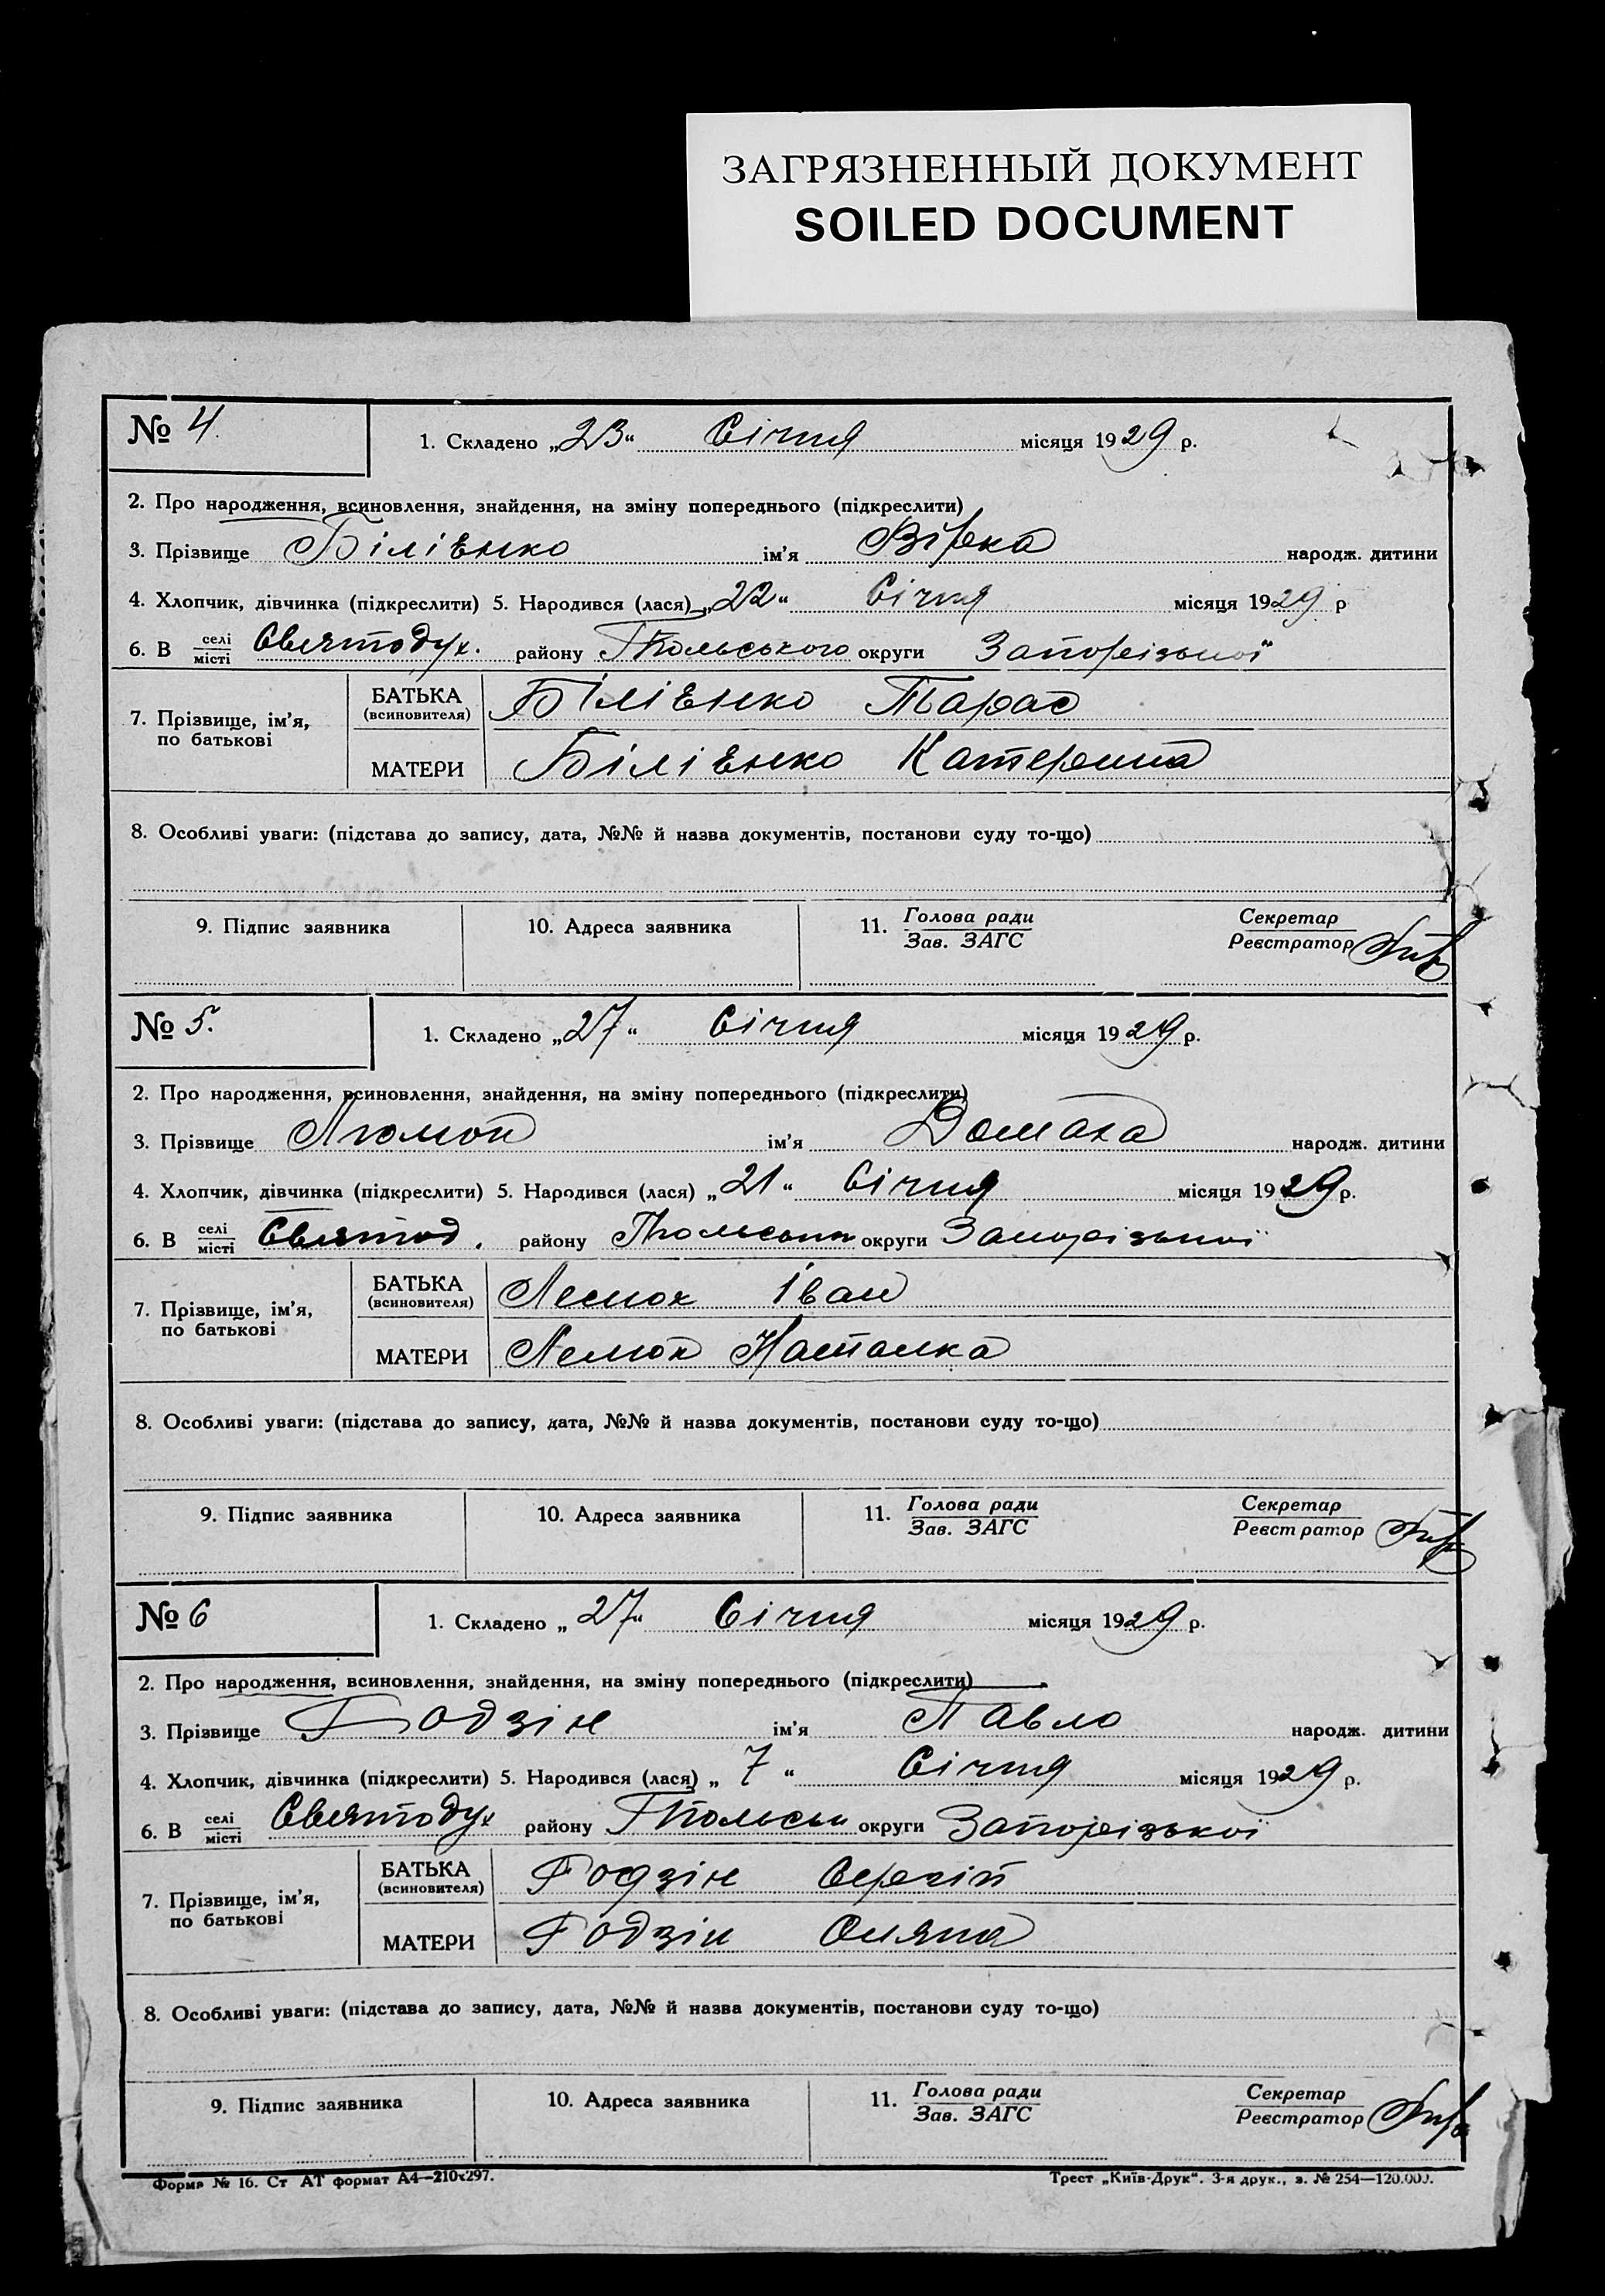 ЗАГРЯЗНЕННЫЙ ДОКУМЕНТ
SOILED DOCUMENT
№ 4. 1. Складено „23“ Січня місяця 1929 р.
2. Про народження, всиновлення, знайдення, на зміну попереднього (підкреслити)
3. Прізвище Біліенко ім’я Вірка народж. дитини
4. Хлопчик, дівчинка (підкреслити) 5. Народився (лася) „22“ Січня місяця 1929 р
6. В селі місті Святодух. району округи Запорізької
7. Прізвище, ім’я, по батькові
БАТЬКА (всиновителя) Біліенко Тарас
МАТЕРИ Біліенко Катерина
8. Особливі уваги: (підстава до запису, дата, №№ й назва документів, постанови суду то-що)
9. Підпис заявника 10. Адреса заявника 11. Голова ради Зав. ЗАГС Секретар Реєстратор
№ 5. 1. Складено „27“ Січня місяця 1929 р.
2. Про народження, всиновлення, знайдення, на зміну попереднього (підкреслити)
3. Прізвище ім’я Домаха народж. дитини
4. Хлопчик, дівчинка (підкреслити) 5. Народився (лася) „21“ Січня місяця 1929 р.
6. В селі місті Святод. району округи Запорізької
7. Прізвище, ім’я, по батькові
БАТЬКА (всиновителя) Іван
МАТЕРИ Наталка
8. Особливі уваги: (підстава до запису, дата, №№ й назва документів, постанови суду то-що)
9. Підпис заявника 10. Адреса заявника 11. Голова ради Зав. ЗАГС Секретар Реєстратор
№ 6 1. Складено „27“ Січня місяця 1929 р.
2. Про народження, всиновлення, знайдення, на зміну попереднього (підкреслити)
3. Прізвище Годзін ім’я Павло народж. дитини
4. Хлопчик, дівчинка (підкреслити) 5. Народився (лася) „7“ Січня місяця 1929 р.
6. В селі місті Святодух району округи Запорізької
7. Прізвище, ім’я, по батькові
БАТЬКА (всиновителя) Годзін Сергій
МАТЕРИ Годзін Оляна
8. Особливі уваги: (підстава до запису, дата, №№ й назва документів, постанови суду то-що)
9. Підпис заявника 10. Адреса заявника 11. Голова ради Зав. ЗАГС Секретар Реєстратор
Форма № 16. Ст АТ формат А4—210×297. Трест „Київ-Друк“. 3-я друк., з. № 254—120.000.